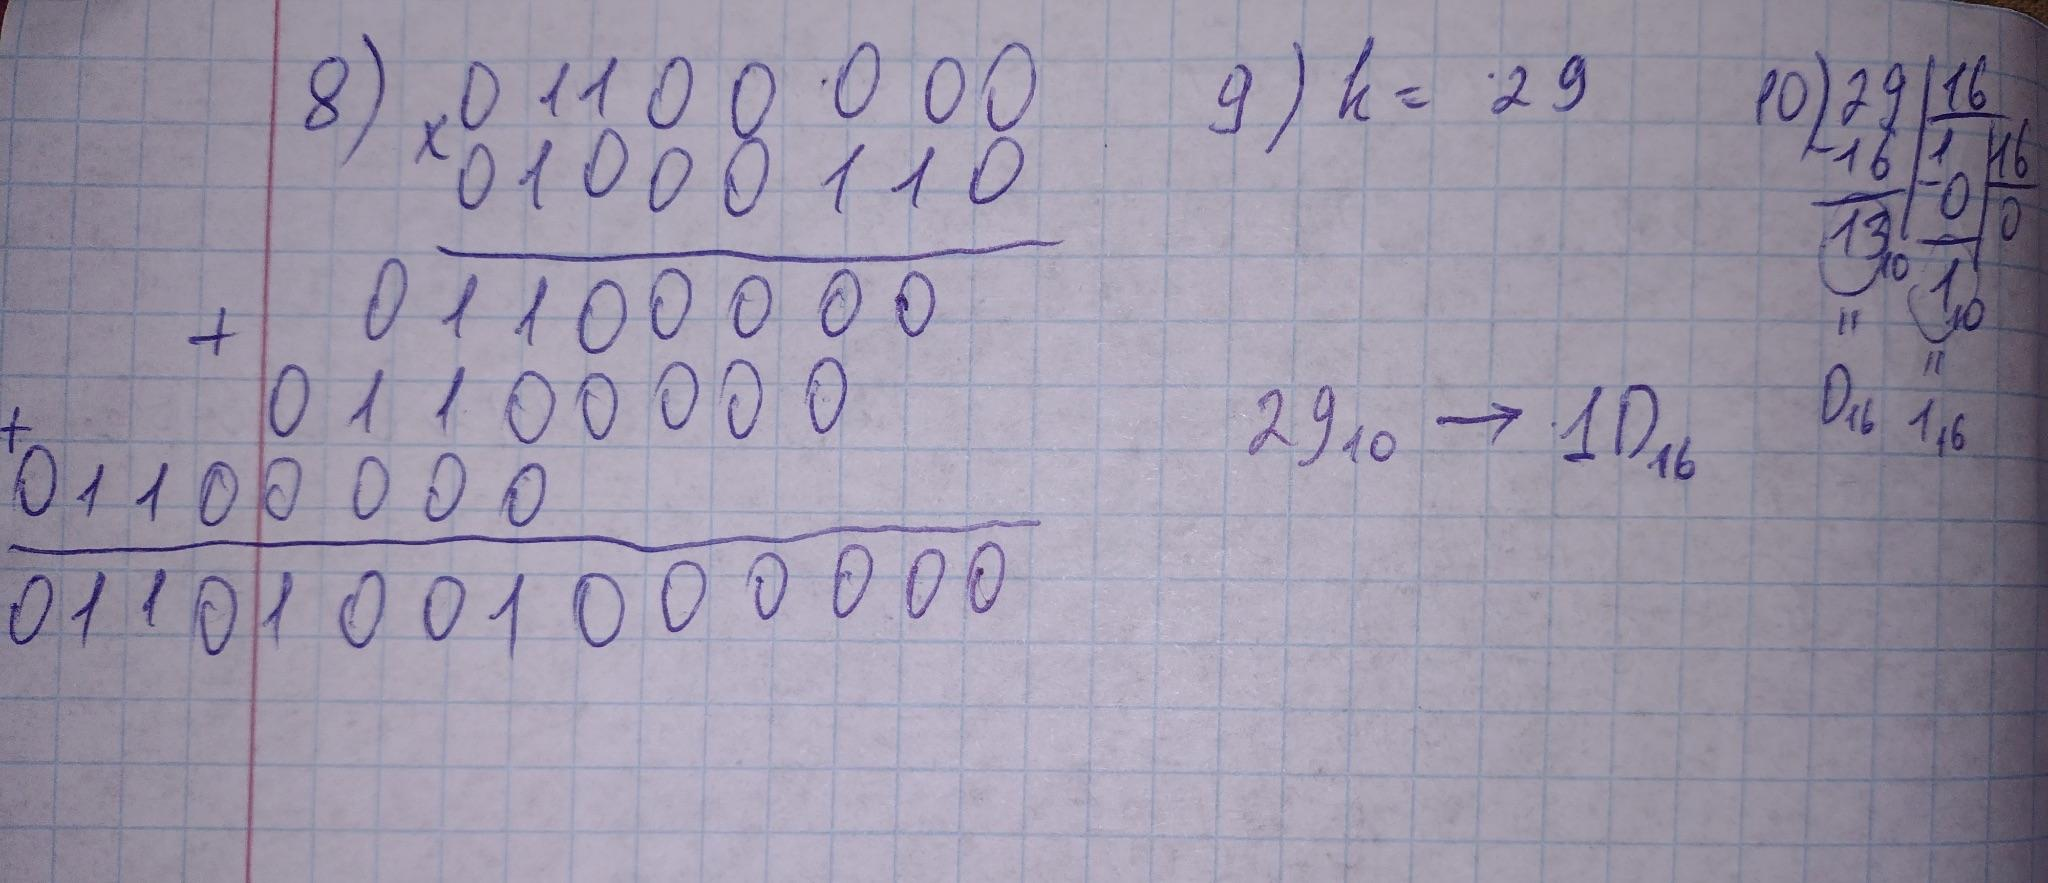 8) × 01100000
01000110
+ 01100000
+ 01100000
01100000
01101001000000
9) k = 29
10) 29 | 16
-16 | 1 | 16
13₁₀ -0 | 0
1₁₀
" "
D₁₆ 1₁₆
29₁₀ → 1D₁₆